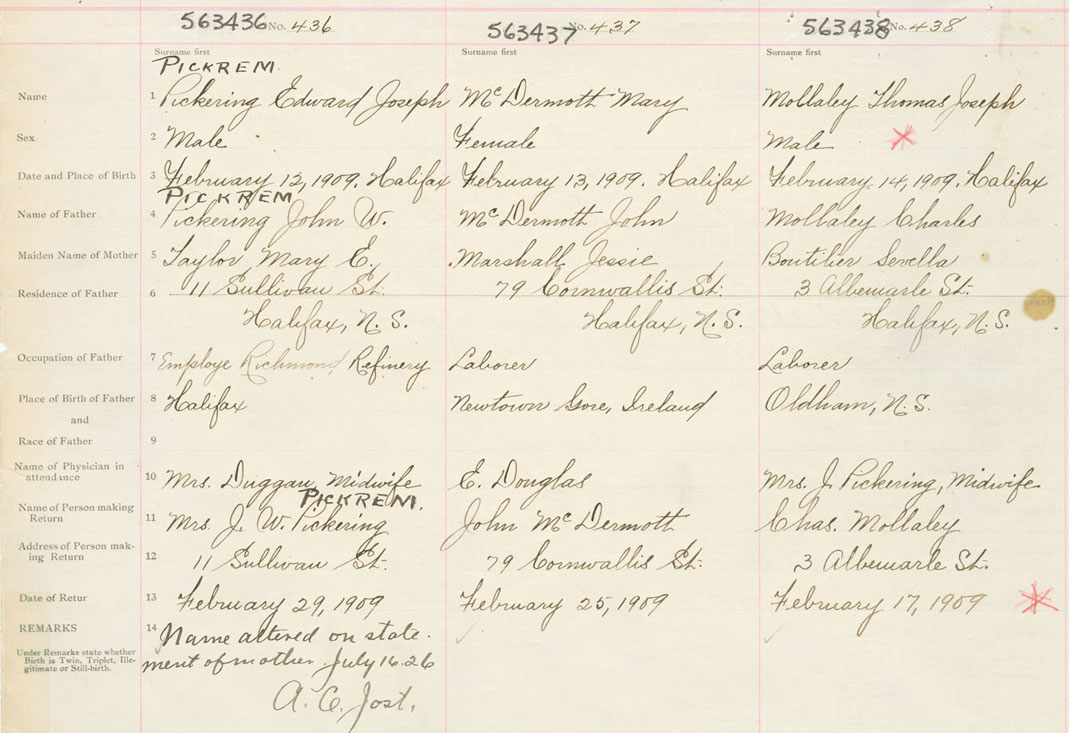 563436 No. 436 563437 No. 437 563438 No. 438
Surname first Surname first Surname first
PICKREM
Name 1 Pickering Edward Joseph McDermoth Mary Mollaley Thomas Joseph
Sex 2 Male Female Male
Date and Place of Birth 3 February 12, 1909. Halifax February 13, 1909. Halifax February 14, 1909. Halifax
PICKREM
Name of Father 4 Pickering John W. McDermoth John Mollaley Charles
Maiden Name of Mother 5 Taylor Mary E., Marshall Jessie Boutilier Sevella
Residence of Father 6 11 Sullivan St. 79 Cornwallis St. 3 Albemarle St.
Halifax, N.S. Halifax, N.S. Halifax, N.S.
Occupation of Father 7 Employe Richmond Refinery Laborer Laborer
Place of Birth of Father 8 Halifax Newtown Gore, Ireland Oldham, N.S.
and
Race of Father 9
Name of Physician in
attendance 10 Mrs. Duggan, Midwife E. Douglas Mrs. J. Pickering, Midwife
PICKREM.
Name of Person making
Return 11 Mrs. J. W. Pickering John McDermoth Chas. Mollaley
Address of Person mak-
ing Return 12 11 Sullivan St. 79 Cornwallis St. 3 Albemarle St.
Date of Retur 13 February 29, 1909 February 25, 1909 February 17, 1909
REMARKS 14 Name altered on state-
Under Remarks state whether
Birth is Twin, Triplet, Ille-
gitimate or Still-birth.
ment of mother July 16.26
A. C. Jost.